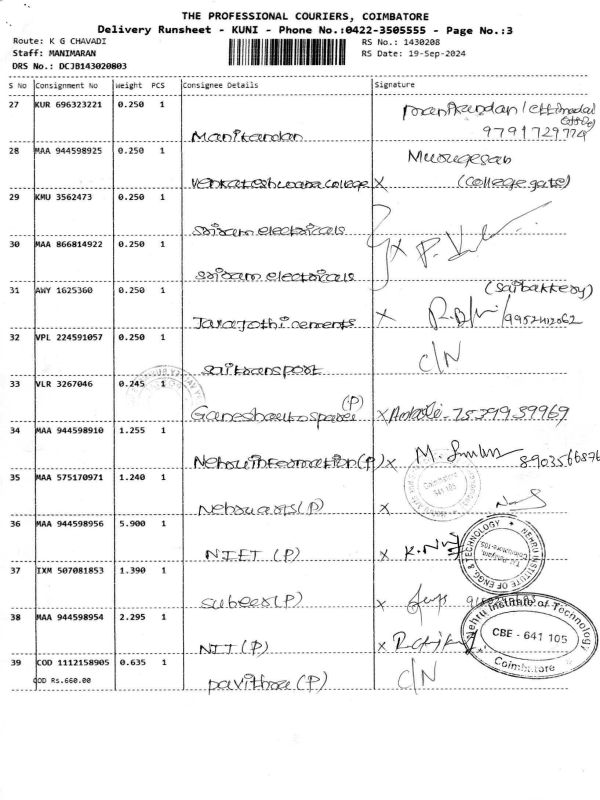 THE PROFESSIONAL COURIERS, COIMBATORE
Delivery Runsheet - KUNI - Phone No.:0422-3505555 - Page No.:3
Route: K G CHAVADI
RS No.: 1430208
Staff: MANIMARAN
RS Date: 19-Sep-2024
DRS No.: DCJB143020803
S No Consignment No Weight PCS Consignee Details Signature
27 KUR 696323221 0.250 1
manikandan/ettimadai
9791729779
Manikandan
28 MAA 944598925 0.250 1
Murugesan
Venkateshwara college X (college gate)
29 KMU 3562473 0.250 1
sriram electricals
30 MAA 866814922 0.250 1
X
sriram electricals
31 AWY 1625360 0.250 1
(saibakkery)
Jarajothi cements X
32 VPL 224591057 0.250 1
C/N
saitransport
33 VLR 3267046 0.245 1
Ganeshautospares (P) X 7539939969
34 MAA 944598910 1.255 1
Nehru information (P) X M.
35 MAA 575170971 1.240 1
Coimbatore
641 105
Nehru arts (P) X
36 MAA 944598956 5.900 1
NIET (P) X
NEHRU INSTITUTE OF ENGG. & TECHNOLOGY
37 IXM 507081853 1.390 1
subeer (P) X
38 MAA 944598954 2.295 1
Nehru Institute of Technology
CBE - 641 105
Coimbatore
NIT (P) X
39 COD 1112158905 0.635 1
C/N
COD Rs.660.00
pavithra (P)